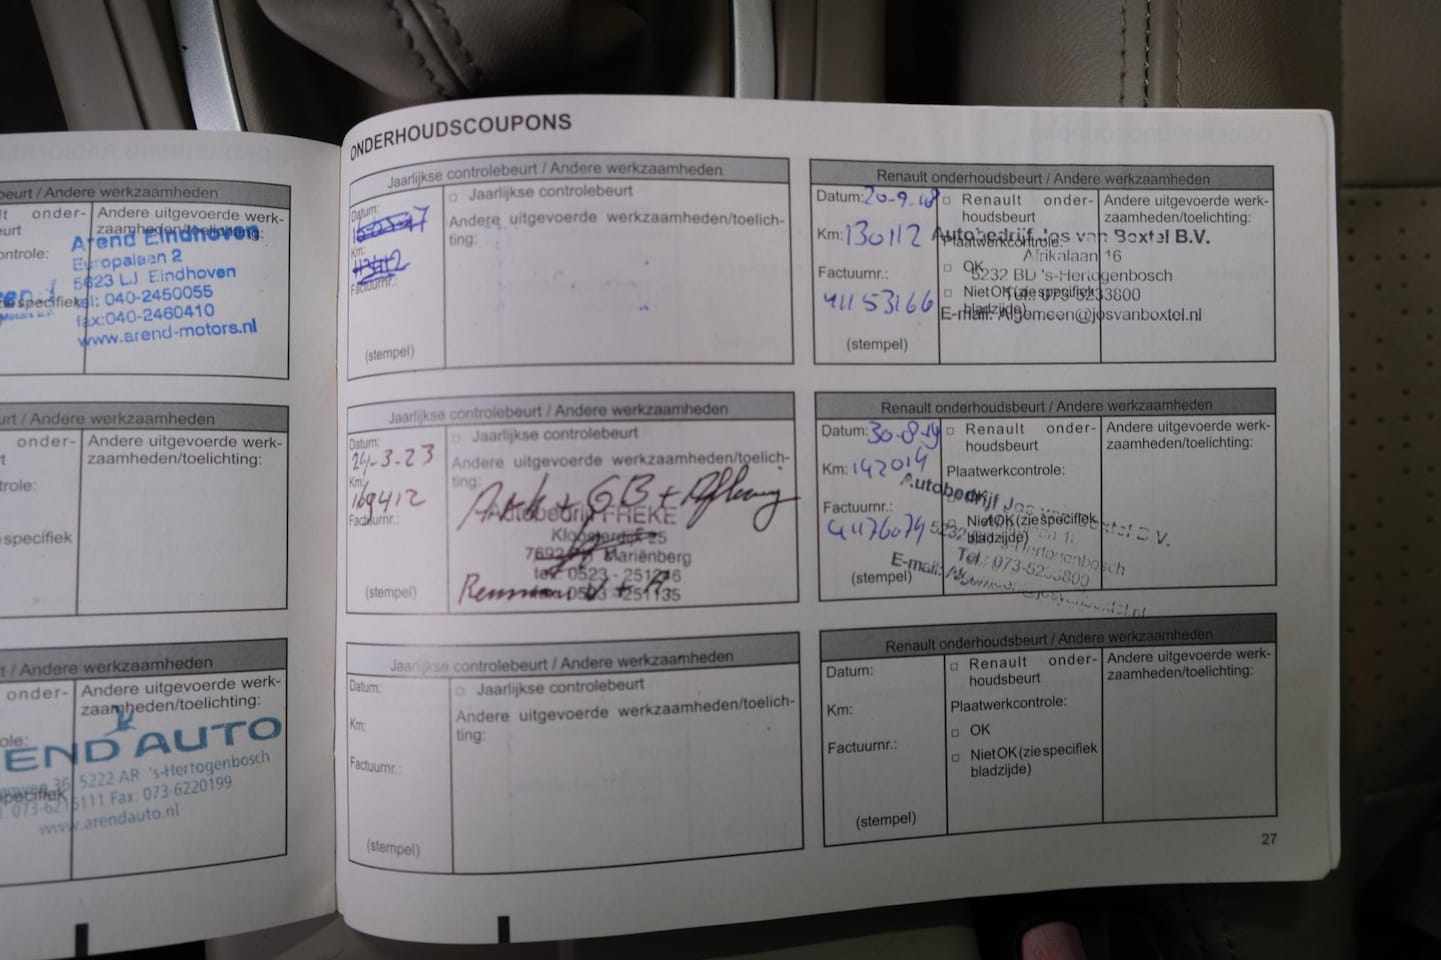 beurt / Andere werkzaamheden
onder-
eurt
Andere uitgevoerde werk-
zaamheden/toelichting:
ontrole:
specifiek
Arend Eindhoven
Europalaan 2
5623 LJ Eindhoven
tel: 040-2450055
fax:040-2460410
www.arend-motors.nl
urt / Andere werkzaamheden
onder-
Andere uitgevoerde werk-
zaamheden/toelichting:
role:
specifiek
t / Andere werkzaamheden
onder-
Andere uitgevoerde werk-
zaamheden/toelichting:
ole:
specifiek
END AUTO
36 5222 AR 's-Hertogenbosch
073-6215111 Fax: 073-6220199
www.arendauto.nl
ONDERHOUDSCOUPONS
Jaarlijkse controlebeurt / Andere werkzaamheden
Datum:
Km:
Factuurnr.:
(stempel)
Jaarlijkse controlebeurt
Andere uitgevoerde werkzaamheden/toelich-
ting:
Renault onderhoudsbeurt / Andere werkzaamheden
Datum: 20-9-18
Km: 130112
Factuurnr.:
41153166
(stempel)
Renault onder-
houdsbeurt
Plaatwerkcontrole:
OK
Niet OK (zie specifiek
bladzijde)
Andere uitgevoerde werk-
zaamheden/toelichting:
Autobedrijf Jos van Boxtel B.V.
Afrikalaan 16
5232 BD 's-Hertogenbosch
Tel.: 073-5233800
E-mail: Algemeen@josvanboxtel.nl
Jaarlijkse controlebeurt / Andere werkzaamheden
Datum:
24-3-23
Km:
169412
Factuurnr.:
(stempel)
Jaarlijkse controlebeurt
Andere uitgevoerde werkzaamheden/toelich-
ting:
+ GB +
Autobedrijf FREKE
Kloosterdijk 25
7692 Mariënberg
tel. 0523 - 251236
0523 - 251135
Renault onderhoudsbeurt / Andere werkzaamheden
Datum: 30-8-19
Km: 142014
Factuurnr.:
41176079
(stempel)
Renault onder-
houdsbeurt
Plaatwerkcontrole:
OK
Niet OK (zie specifiek
bladzijde)
Andere uitgevoerde werk-
zaamheden/toelichting:
Autobedrijf Jos van Boxtel B.V.
5232 's-Hertogenbosch
Tel.: 073-5233800
E-mail: Algemeen@josvanboxtel.nl
Jaarlijkse controlebeurt / Andere werkzaamheden
Datum:
Km:
Factuurnr.:
(stempel)
Jaarlijkse controlebeurt
Andere uitgevoerde werkzaamheden/toelich-
ting:
Renault onderhoudsbeurt / Andere werkzaamheden
Datum:
Km:
Factuurnr.:
(stempel)
Renault onder-
houdsbeurt
Plaatwerkcontrole:
OK
Niet OK (zie specifiek
bladzijde)
Andere uitgevoerde werk-
zaamheden/toelichting:
27